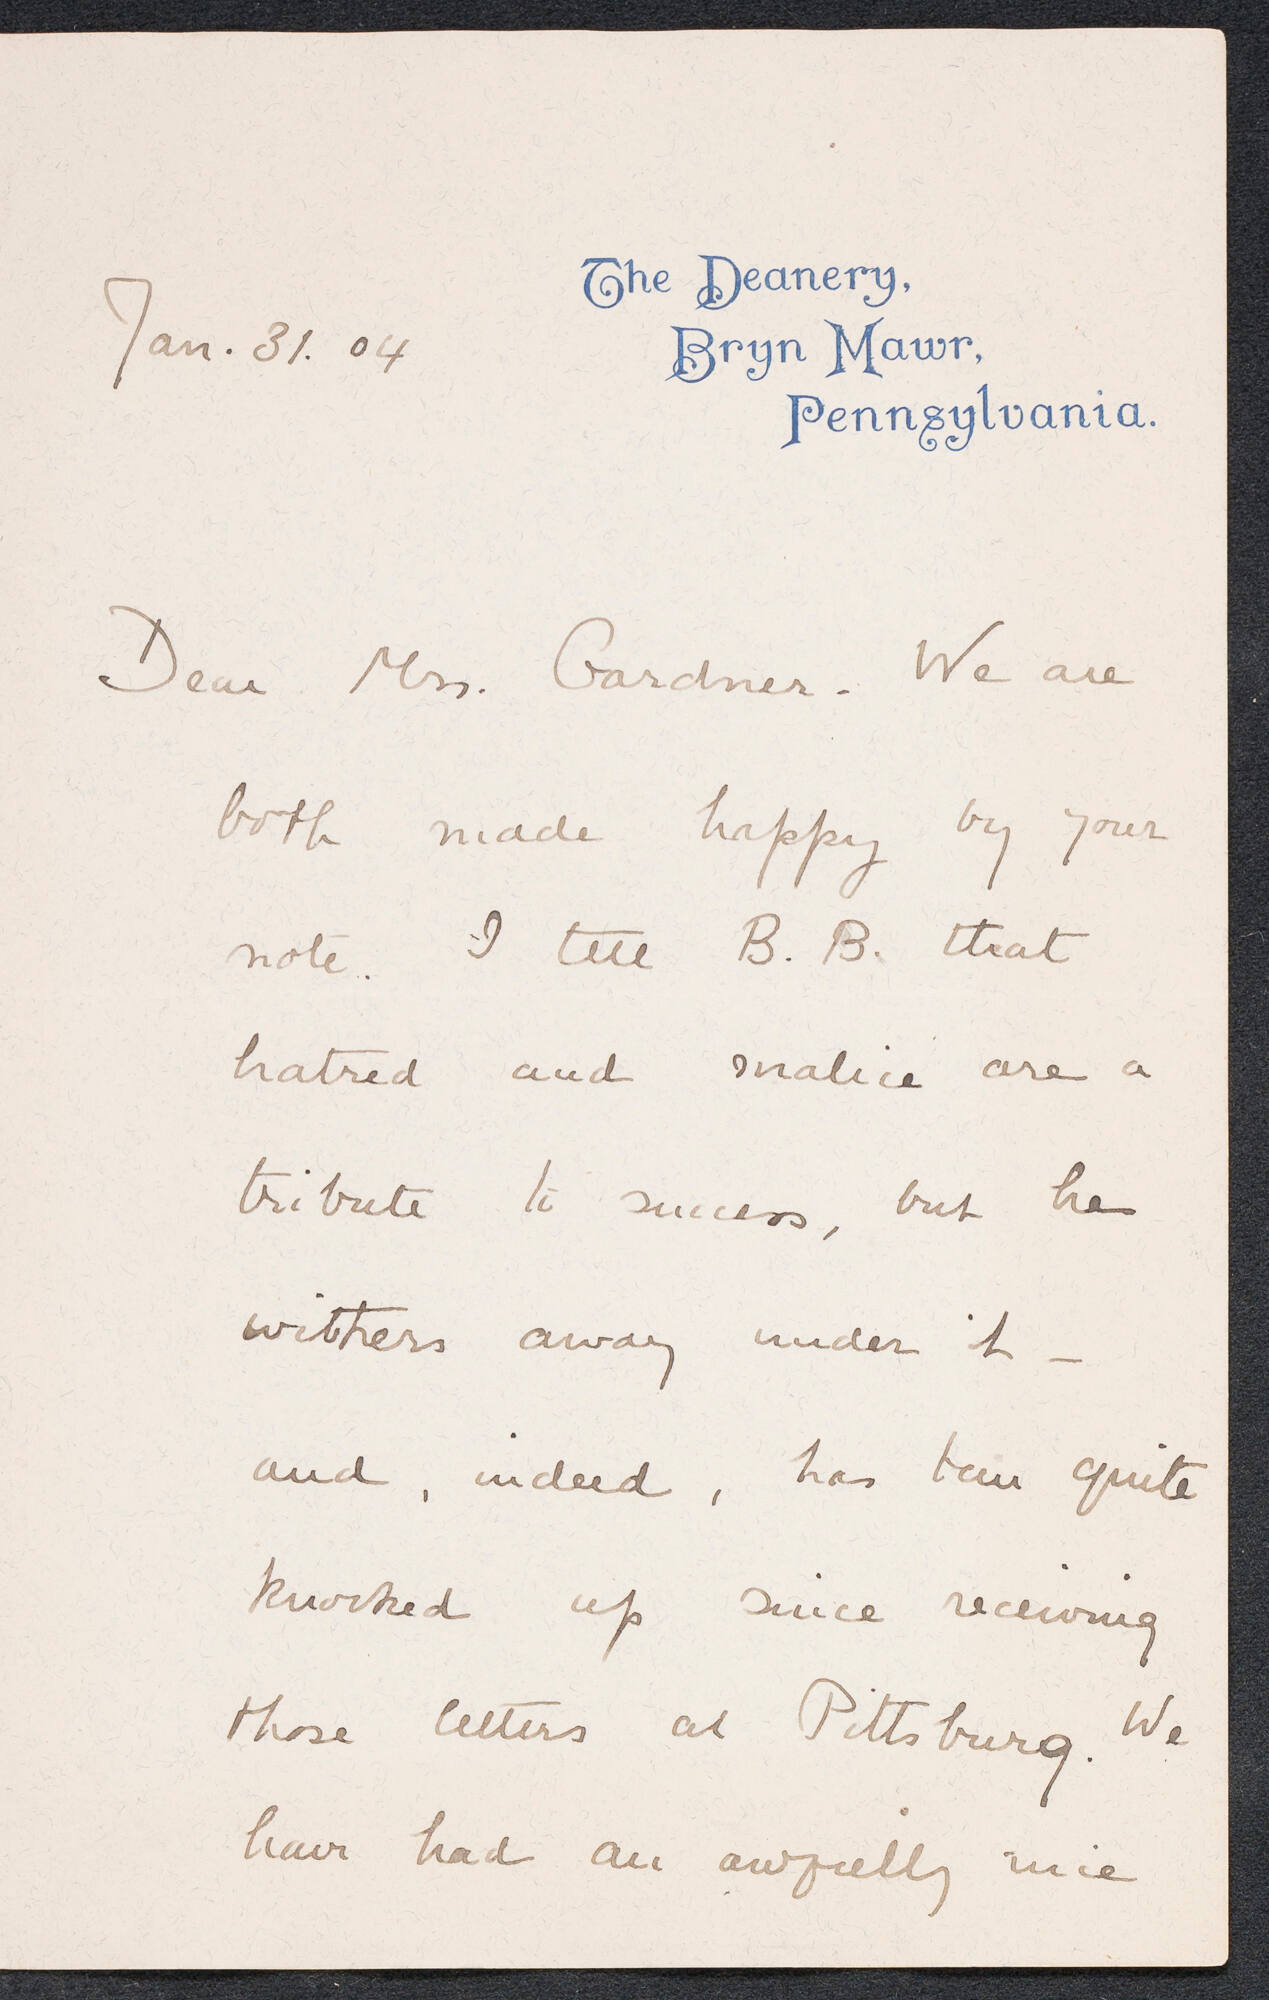 The Deanery,
Bryn Mawr,
Pennsylvania.
Jan. 31. 04
Dear Mrs. Gardner. We are
both made happy by your
note. I tell B. B. that
hatred and malice are a
tribute to success, but he
withers away under it –
and, indeed, has been quite
knocked up since receiving
those letters at Pittsburg. We
have had an awfully nice